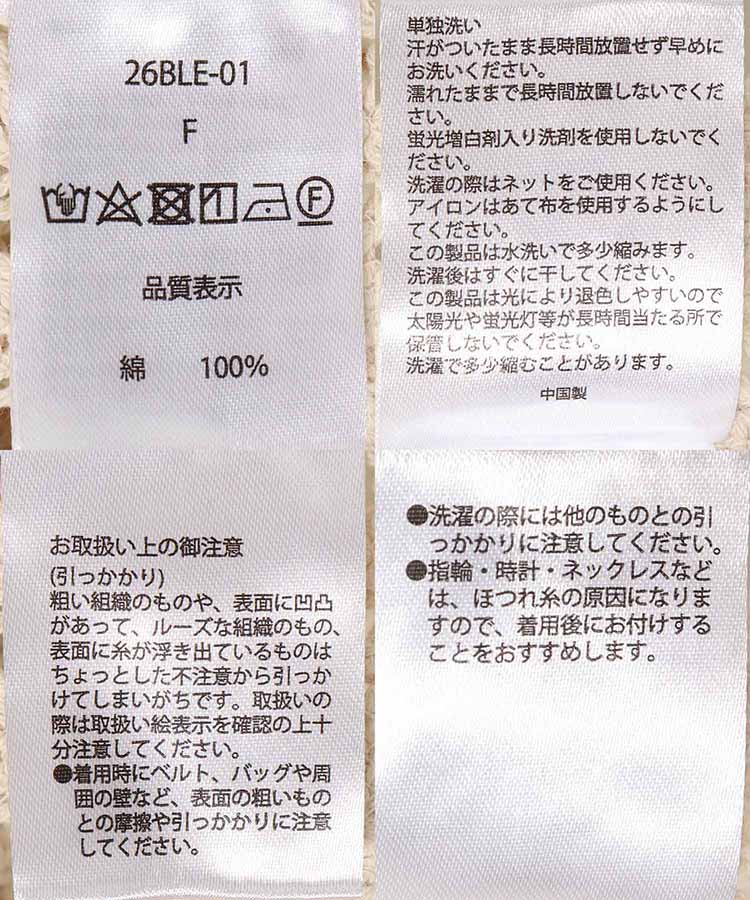 26BLE-01
F
品質表示
綿 100%
単独洗い
汗がついたまま長時間放置せず早めに
お洗いください。
濡れたままで長時間放置しないでくだ
さい。
蛍光増白剤入り洗剤を使用しないでく
ださい。
洗濯の際はネットをご使用ください。
アイロンはあて布を使用するようにし
てください。
この製品は水洗いで多少縮みます。
洗濯後はすぐに干してください。
この製品は光により退色しやすいので
太陽光や蛍光灯等が長時間当たる所で
保管しないでください。
洗濯で多少縮むことがあります。
中国製
お取扱い上の御注意
(引っかかり)
粗い組織のものや、表面に凹凸
があって、ルーズな組織のもの、
表面に糸が浮き出ているものは
ちょっとした不注意から引っか
けてしまいがちです。取扱いの
際は取扱い絵表示を確認の上十
分注意してください。
●着用時にベルト、バッグや周
囲の壁など、表面の粗いもの
との摩擦や引っかかりに注意
してください。
●洗濯の際には他のものとの引
っかかりに注意してください。
●指輪・時計・ネックレスなど
は、ほつれ糸の原因になりま
すので、着用後にお付けする
ことをおすすめします。